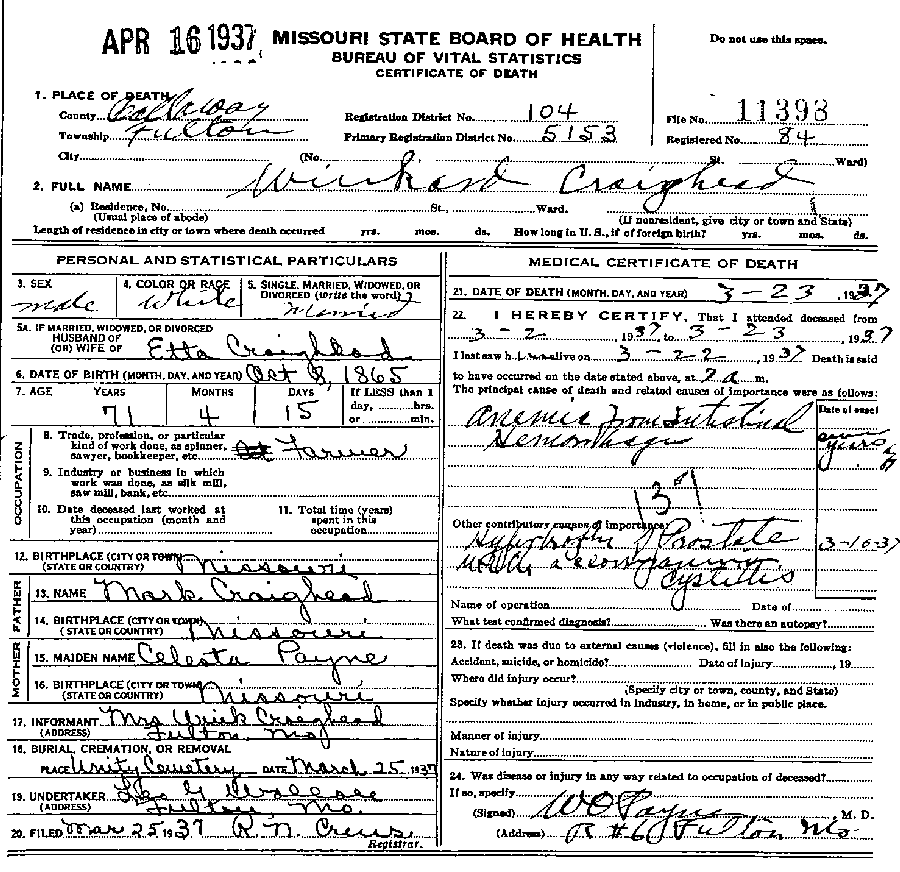 APR 16 1937
MISSOURI STATE BOARD OF HEALTH
BUREAU OF VITAL STATISTICS
CERTIFICATE OF DEATH
Do not use this space.
1. PLACE OF DEATH
County Callaway
Township Fulton
City (No. St. Ward)
Registration District No. 104
Primary Registration District No. 5153
File No. 11393
Registered No. 84
2. FULL NAME Craighead
(a) Residence, No. St., Ward.
(Usual place of abode) (If nonresident, give city or town and State)
Length of residence in city or town where death occurred yrs. mos. ds. How long in U. S., if of foreign birth? yrs. mos. ds.
PERSONAL AND STATISTICAL PARTICULARS
3. SEX 4. COLOR OR RACE 5. SINGLE, MARRIED, WIDOWED, OR DIVORCED (write the word)
male White Married
5A. IF MARRIED, WIDOWED, OR DIVORCED
HUSBAND OF
(OR) WIFE OF Etta Craighead
6. DATE OF BIRTH (MONTH, DAY, AND YEAR) Oct 8, 1865
7. AGE YEARS MONTHS DAYS If LESS than 1
day, hrs.
or min.
71 4 15
OCCUPATION
8. Trade, profession, or particular
kind of work done, as spinner,
sawyer, bookkeeper, etc. Farmer
9. Industry or business in which
work was done, as silk mill,
saw mill, bank, etc.
10. Date deceased last worked at
this occupation (month and
year)
11. Total time (years)
spent in this
occupation
12. BIRTHPLACE (CITY OR TOWN)
(STATE OR COUNTRY) Missouri
FATHER
13. NAME Mark Craighead
14. BIRTHPLACE (CITY OR TOWN)
(STATE OR COUNTRY) Missouri
MOTHER
15. MAIDEN NAME Celesta Payne
16. BIRTHPLACE (CITY OR TOWN)
(STATE OR COUNTRY) Missouri
17. INFORMANT Mrs Craighead
(ADDRESS) Fulton Mo
18. BURIAL, CREMATION, OR REMOVAL
PLACE Unity Cemetery DATE March 25 1937
19. UNDERTAKER
(ADDRESS) Fulton Mo.
20. FILED Mar 25 1937 R. N. Crews
Registrar.
MEDICAL CERTIFICATE OF DEATH
21. DATE OF DEATH (MONTH, DAY, AND YEAR) 3-23, 1937
22. I HEREBY CERTIFY, That I attended deceased from
3-2, 1937, to 3-23, 1937
I last saw h alive on 3-22, 1937 Death is said
to have occurred on the date stated above, at a m.
The principal cause of death and related causes of importance were as follows:
Date of onset
Anemia from Intestinal
Hemorrhage
years
137
Other contributory causes of importance:
Hypertrophy of Prostate 3-10-37
cystitis
Name of operation Date of
What test confirmed diagnosis? Was there an autopsy?
23. If death was due to external causes (violence), fill in also the following:
Accident, suicide, or homicide? Date of injury , 19
Where did injury occur?
(Specify city or town, county, and State)
Specify whether injury occurred in industry, in home, or in public place.
Manner of injury
Nature of injury
24. Was disease or injury in any way related to occupation of deceased?
If so, specify
(Signed) W O Payne M. D.
(Address) R #6 Fulton Mo